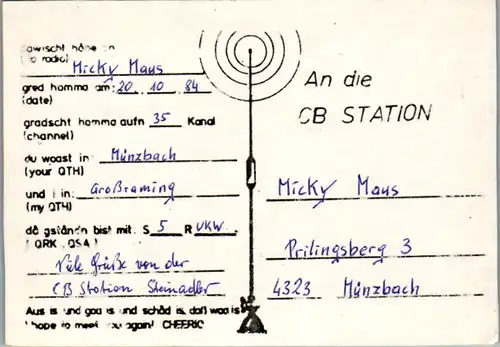 dawischt höbe
(to radio) Micky Maus
gred homma am: 20 . 10 . 84
(date)
gradscht homma aufn 35 Kanal
(channel)
du woast in: Münzbach
(your QTH)
und i in: Großraming
(my QTH)
då gståndn bist mit: S 5 R UKW.
( QRK . QSA )
Viele Grüße von der
CB Station Steinadler
Aus is und goa is und schåd is, daß woa is
I hope to meet you again! CHEERIO
An die
CB STATION
Micky Maus
Prilingsberg 3
4323 Münzbach